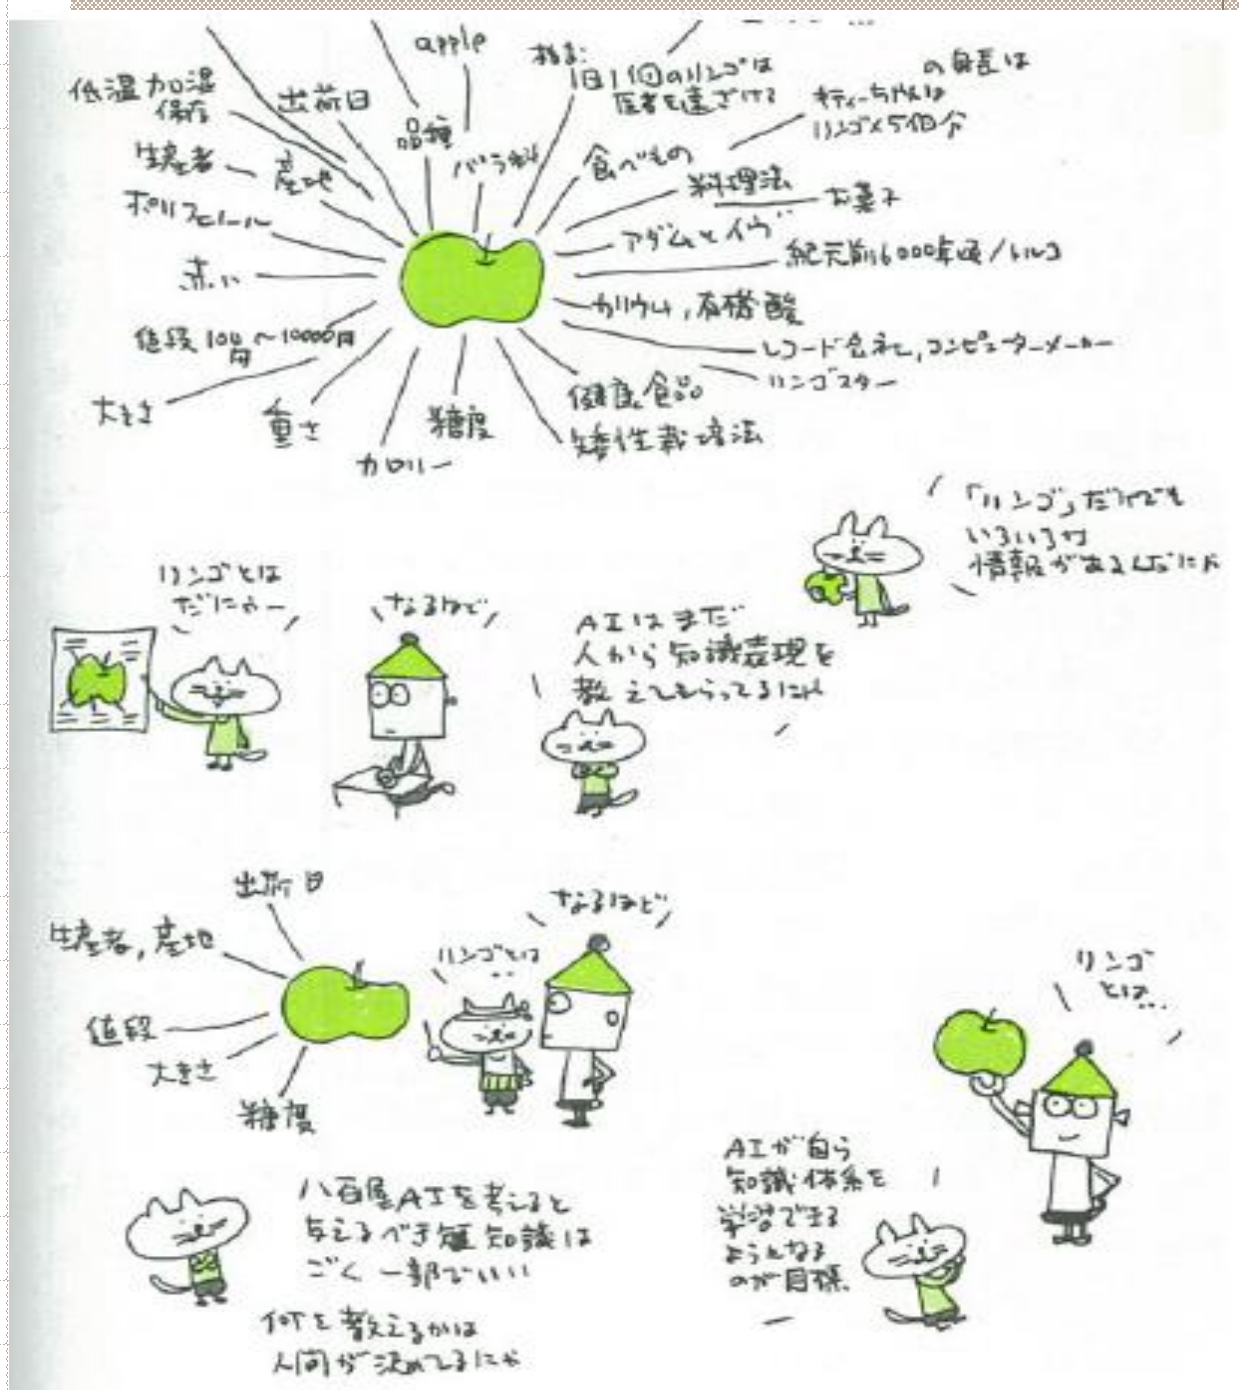 apple
指言:
1日1個のリンゴは
医者を遠ざける
の身長は
キティーちゃんは
リンゴ×5個分
低温加湿
保存
出荷日
品種
バラ科
食べもの
生産者
産地
料理法
お菓子
ポリフェノール
アダムとイヴ
紀元前6000年頃/トルコ
赤い
カリウム,有機酸
値段100円〜10000円
レコード会社,コンピューターメーカー
リンゴスター
大きさ
重さ
糖度
健康食品
カロリー
矮性栽培法
「リンゴ」だけでも
いろいろな
情報があるんだにゃ
リンゴとは
だにゃー
なるほど
AIはまだ
人から知識表現を
教えてもらってるにゃ
出荷日
生産者,産地
値段
大きさ
糖度
リンゴとは
なるほど
リンゴ
とは...
八百屋AIを考えると
与えるべき 知識は
ごく一部でいい
何を教えるかは
人間が決めてるにゃ
AIが自ら
知識体系を
学習できる
ようになる
のが目標